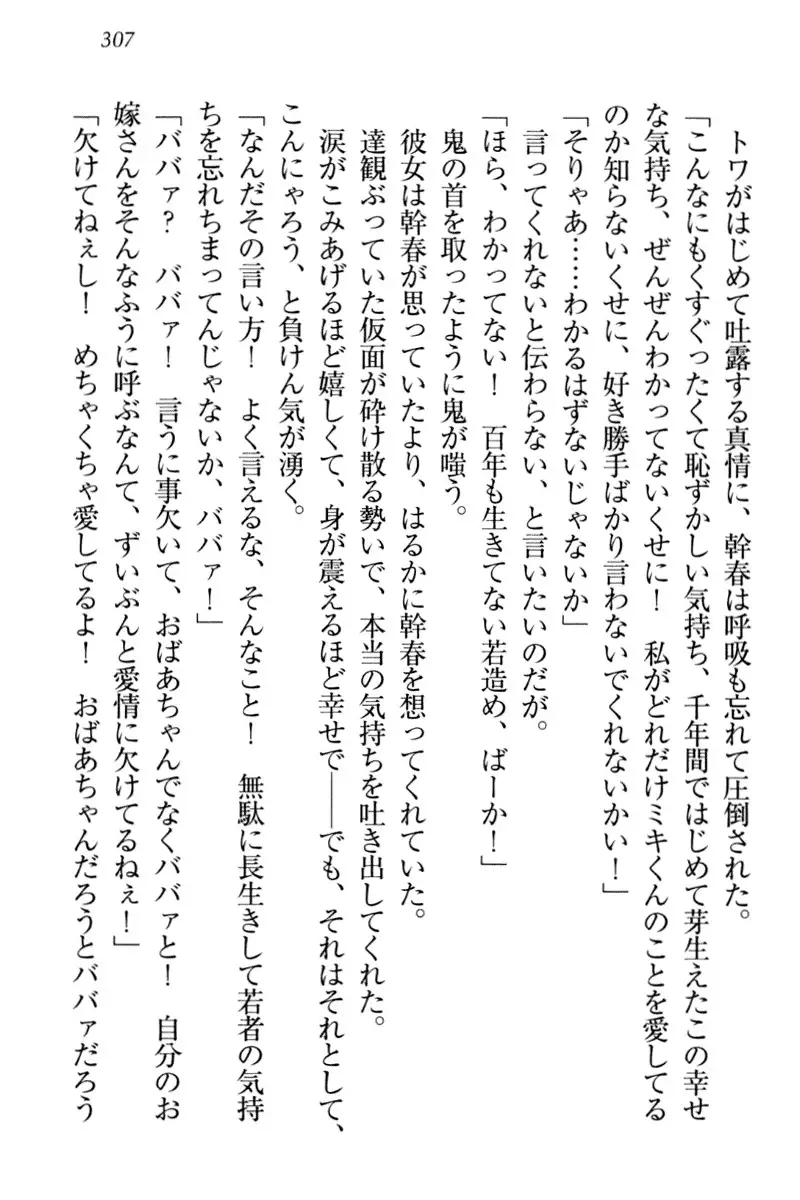 307
　トワがはじめて吐露する真情に、幹春は呼吸も忘れて圧倒された。
「こんなにもくすぐったくて恥ずかしい気持ち、千年間ではじめて芽生えたこの幸せ
な気持ち、ぜんぜんわかってないくせに！　私がどれだけミキくんのことを愛してる
のか知らないくせに、好き勝手ばかり言わないでくれないかい！」
「そりゃあ……わかるはずないじゃないか」
　言ってくれないと伝わらない、と言いたいのだが。
「ほら、わかってない！　百年も生きてない若造め、ばーか！」
　鬼の首を取ったように鬼が嗤う。
　彼女は幹春が思っていたより、はるかに幹春を想ってくれていた。
　達観ぶっていた仮面が砕け散る勢いで、本当の気持ちを吐き出してくれた。
　涙がこみあげるほど嬉しくて、身が震えるほど幸せで――でも、それはそれとして、
こんにゃろう、と負けん気が湧く。
「なんだその言い方！　よく言えるな、そんなこと！　無駄に長生きして若者の気持
ちを忘れちまってんじゃないか、ババァ！」
「ババァ？　ババァ！　言うに事欠いて、おばあちゃんでなくババァと！　自分のお
嫁さんをそんなふうに呼ぶなんて、ずいぶんと愛情に欠けてるねぇ！」
「欠けてねぇし！　めちゃくちゃ愛してるよ！　おばあちゃんだろうとババァだろう